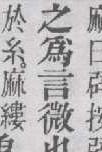 麻曰
之為言微也
於糸。麻縷